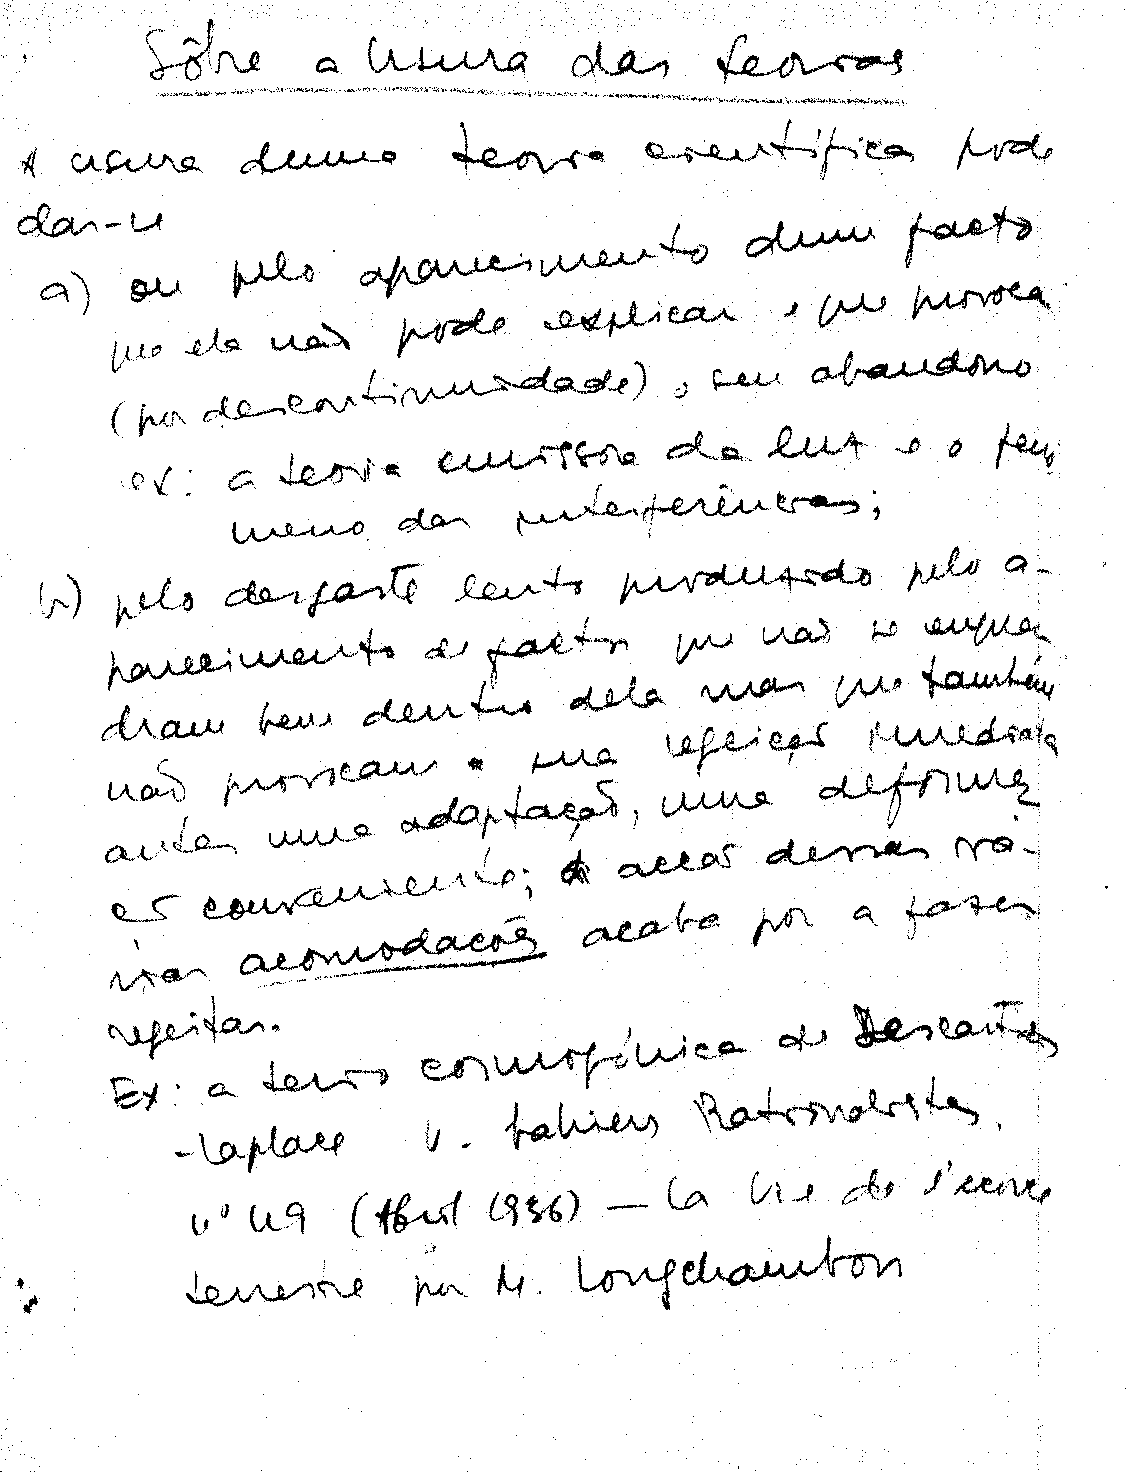 Sôbre a Usura das teorias
A usura duma teoria científica pode
dar-se
a) ou pelo aparecimento dum facto
que ela não pode explicar e que provoca
(por descontinuidade) o seu abandono
ex: a teoria emissora da luz e o fenó
meno das interferências;
b) pelo desgaste lento produzido pelo a-
parecimento de factos que não se enqua
dram bem dentro dela mas que também
não provocam a sua rejeição imediata
antes uma adaptação, uma deforma
ção conveniente; a acção dessas vá-
rias acomodações acaba por a fazer
rejeitar.
Ex: a teoria cosmogónica de Descartes
-Laplace v. Cahiers Rationalistes,
nº 49 (Abril 1936) — La Vie de l'écorce
terrestre por M. Longchambon